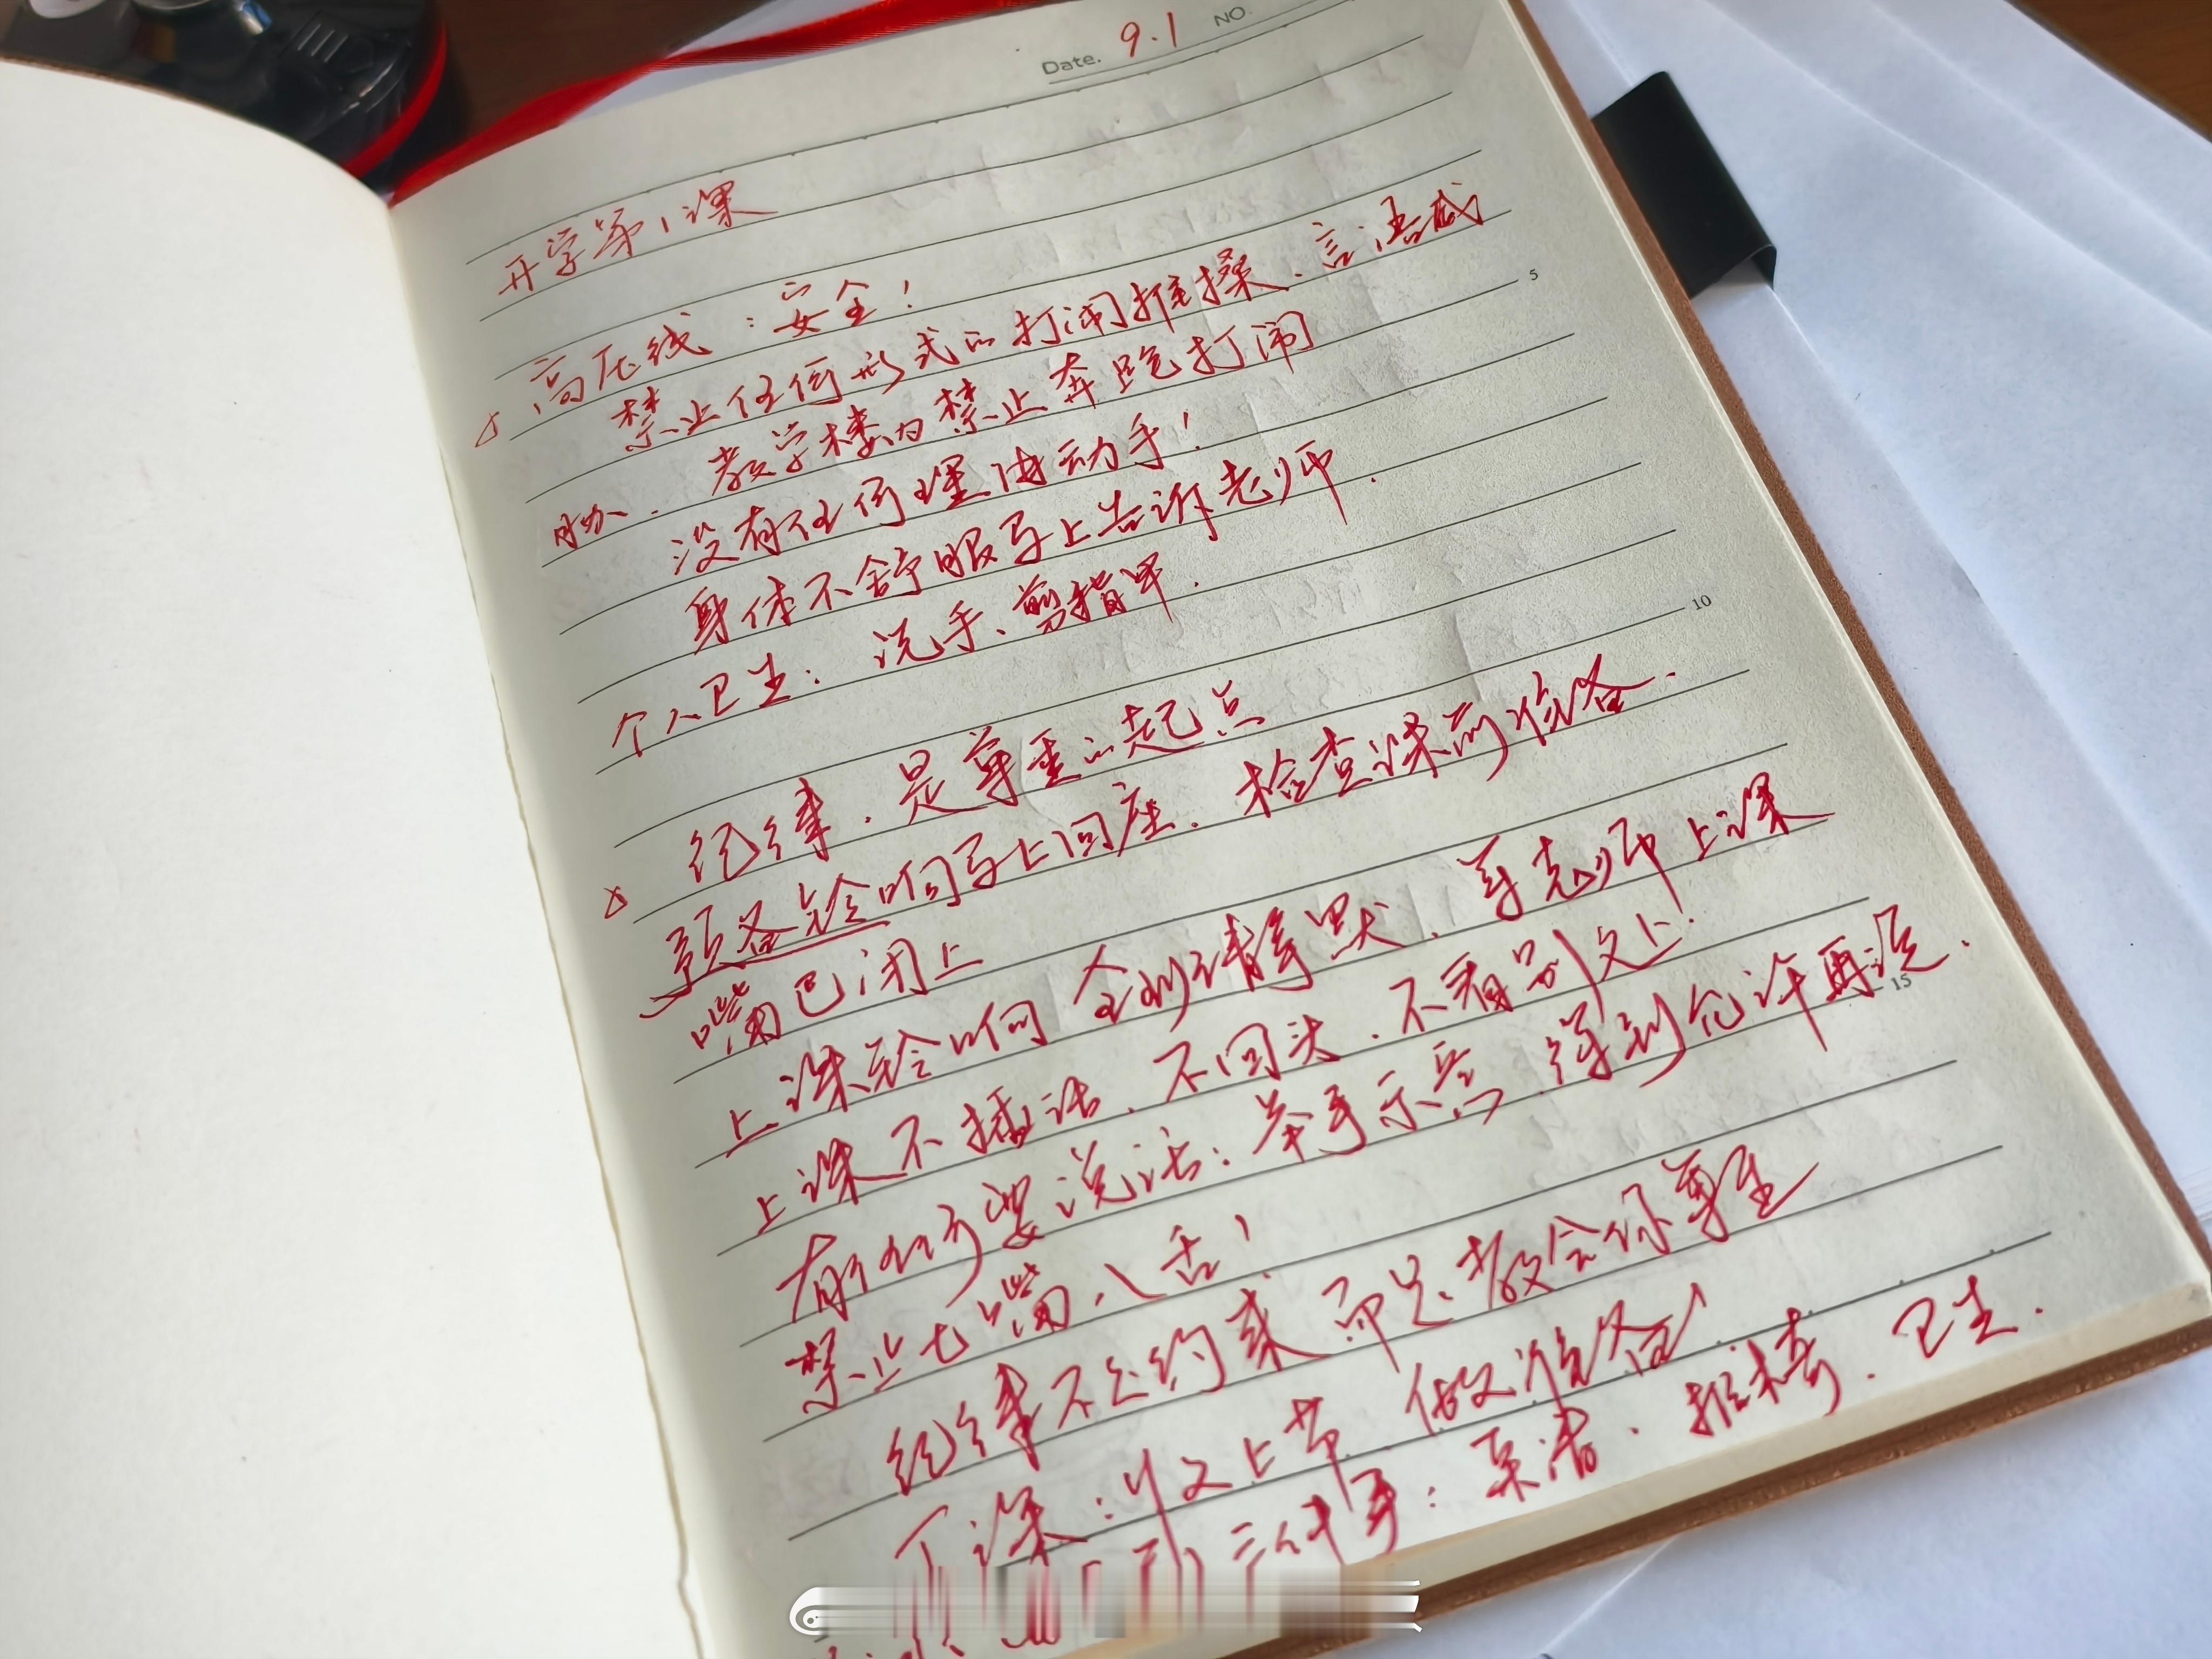 Date. 9.1 NO.
开学第1课
高压线：安全！
禁止任何形式的打闹推搡、言语威
胁. 教学楼内禁止奔跑打闹
没有任何理由动手！
身体不舒服马上告诉老师.
个人卫生：洗手、剪指甲.
纪律. 是尊重的起点
预备铃响马上回座. 检查课前准备.
嘴巴闭上
上课铃响 全班静默. 等老师上课
上课不插话、不回头. 不看别处！
有任何要说话：举手示意. 得到允许再说.
禁止七嘴八舌！
纪律不是约束 而是教会你尊重
下课：收上节. 做准备
三件事：桌清、推椅、卫生.
5
10
15